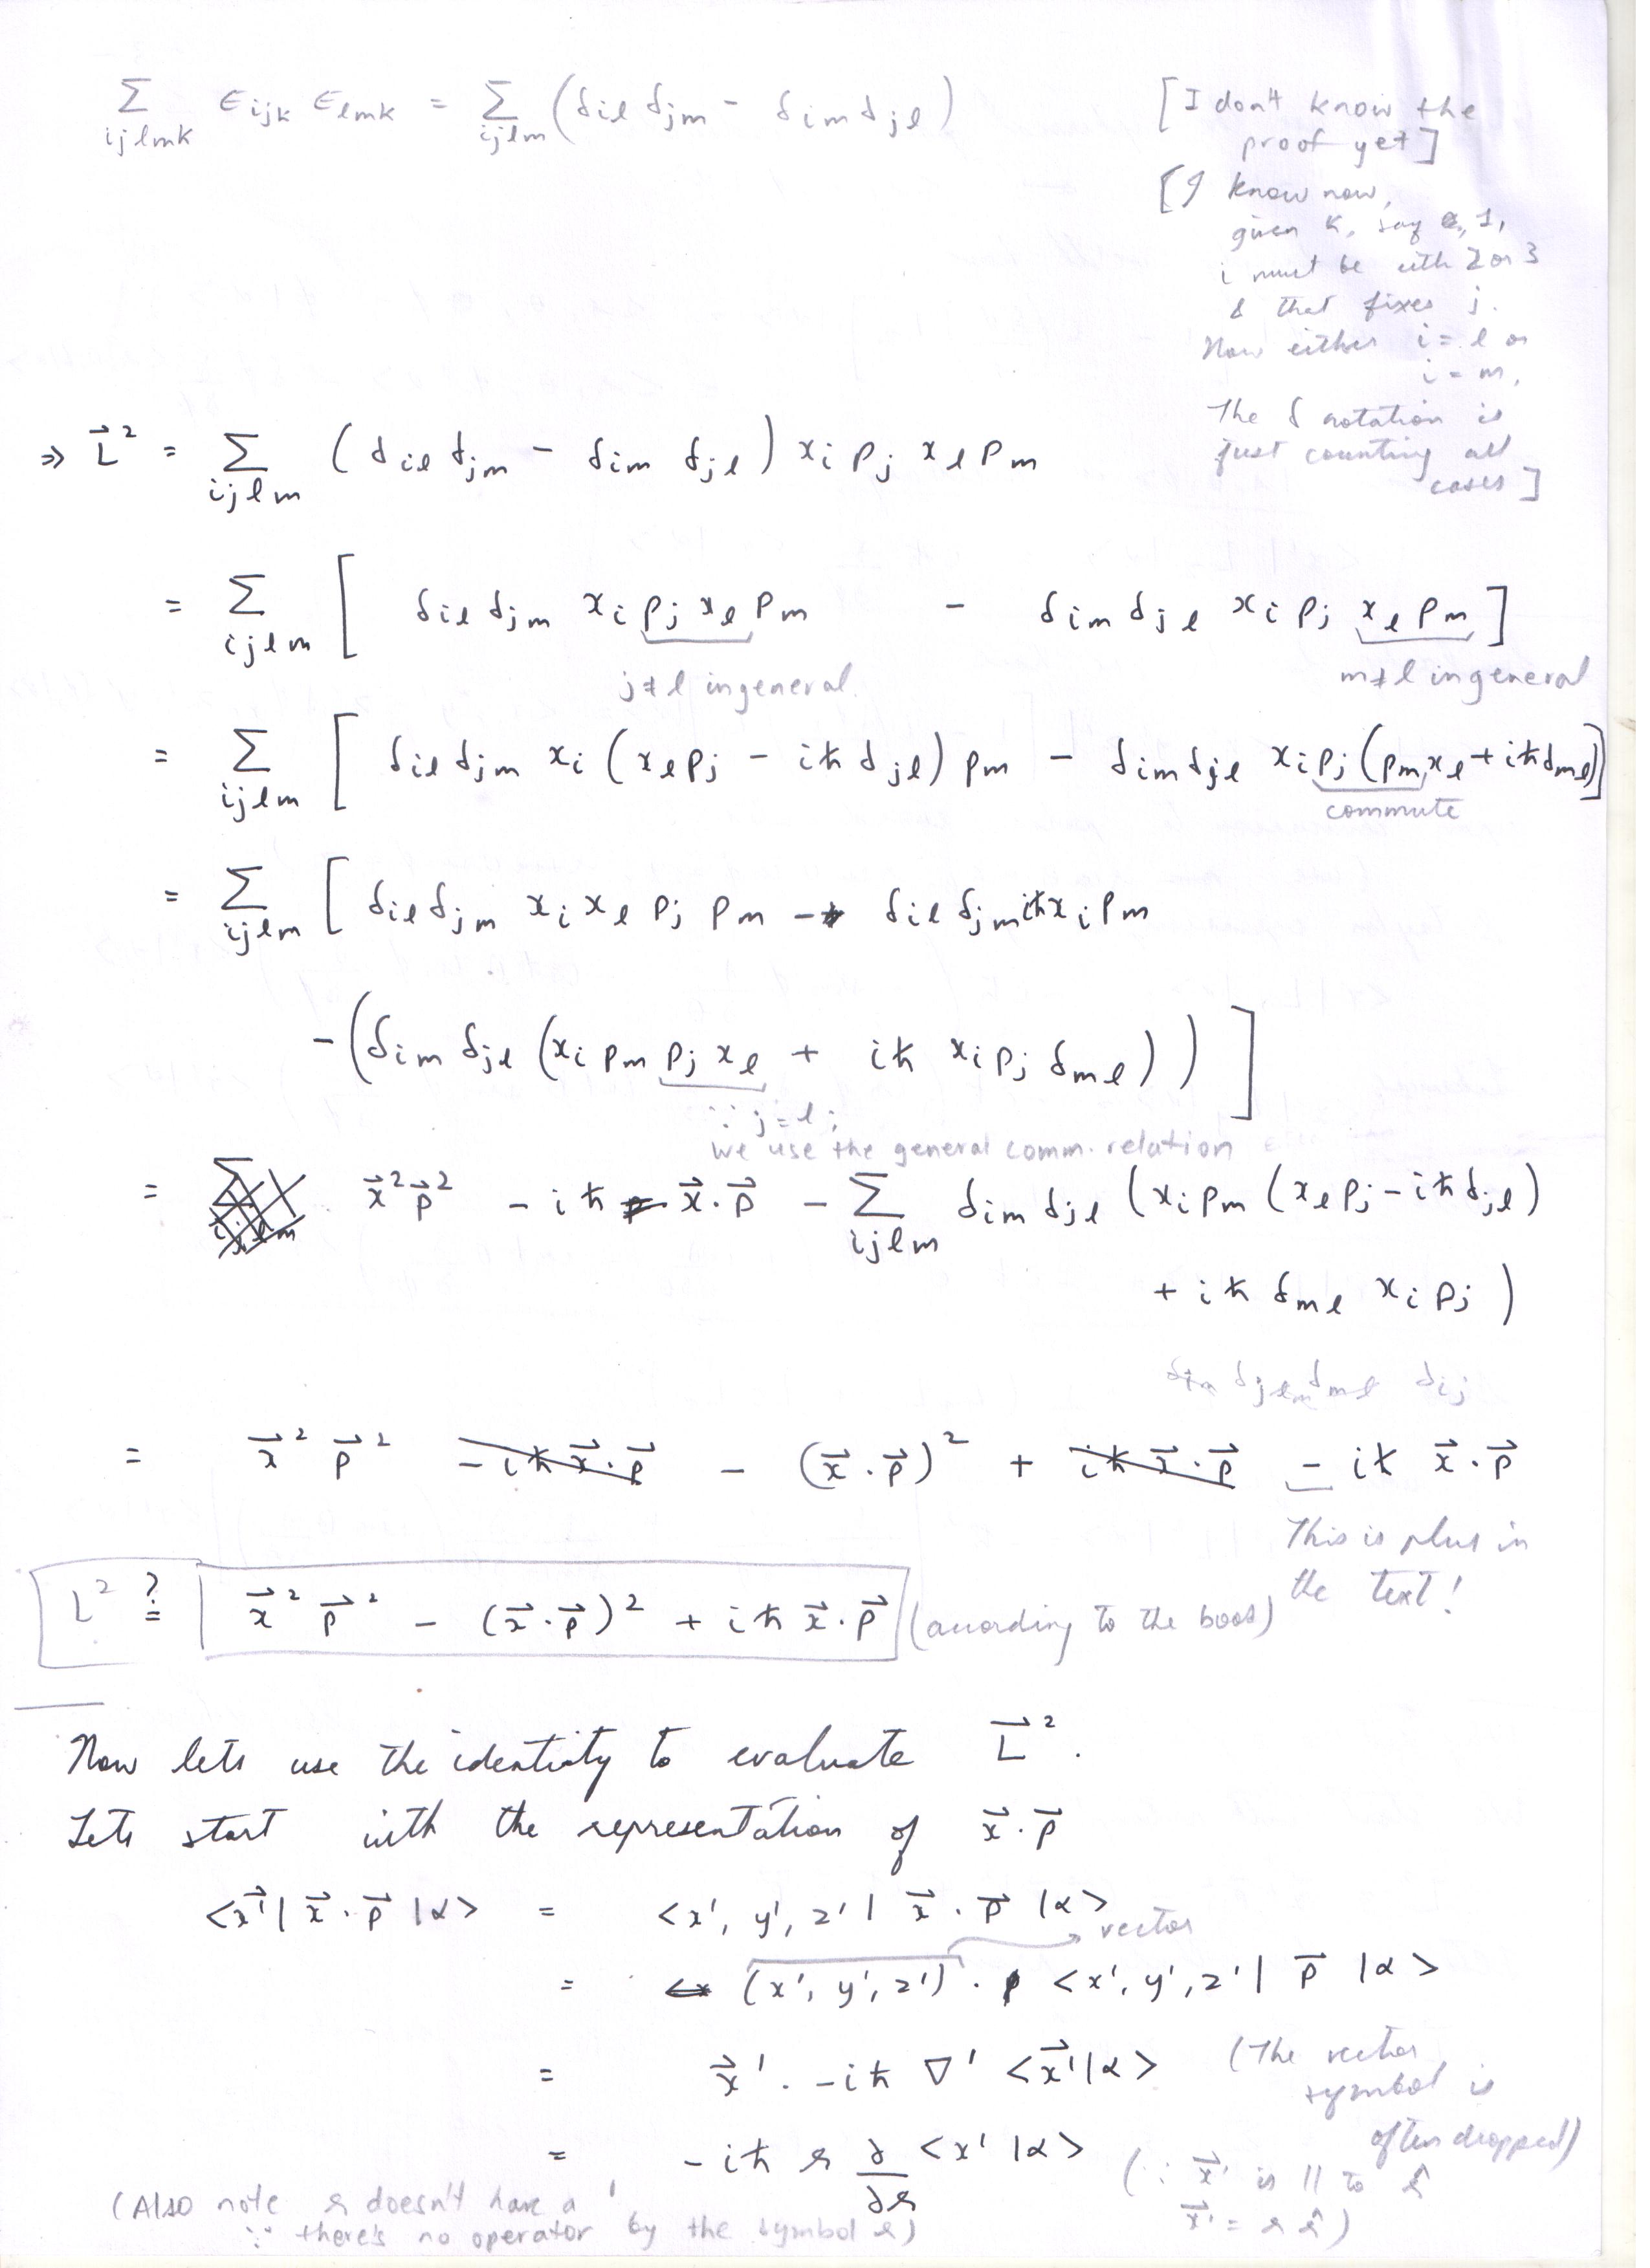 Σ_{ijlmk} ε_{ijk} ε_{lmk} = Σ_{ijlm} (δ_{il} δ_{jm} - δ_{im} δ_{jl})
[I don't know the
proof yet]
[I know now,
given k, say 1,
i must be eith 2 or 3
& that fixes j.
Now either i = l or
i = m,
The δ notation is
just counting all
cases]
⇒ L⃗² = Σ_{ijlm} (δ_{il} δ_{jm} - δ_{im} δ_{jl}) x_i p_j x_l p_m
= Σ_{ijlm} [ δ_{il} δ_{jm} x_i p_j x_l p_m - δ_{im} δ_{jl} x_i p_j x_l p_m ]
j≠l in general. m≠l in general
= Σ_{ijlm} [ δ_{il} δ_{jm} x_i (x_l p_j - iħ δ_{jl}) p_m - δ_{im} δ_{jl} x_i p_j (p_m x_l + iħ δ_{ml}) ]
commute
= Σ_{ijlm} [ δ_{il} δ_{jm} x_i x_l p_j p_m - δ_{il} δ_{jm} iħ x_i p_m
- (δ_{im} δ_{jl} (x_i p_m p_j x_l + iħ x_i p_j δ_{ml})) ]
∵ j = l ;
we use the general comm. relation
= x⃗² p⃗² - iħ x⃗·p⃗ - Σ_{ijlm} δ_{im} δ_{jl} (x_i p_m (x_l p_j - iħ δ_{jl})
+ iħ δ_{ml} x_i p_j )
δ_{ij}
= x⃗² p⃗² - iħ x⃗·p⃗ - (x⃗·p⃗)² + iħ x⃗·p⃗ - iħ x⃗·p⃗
This is plus in
the text!
L² ?= x⃗² p⃗² - (x⃗·p⃗)² + iħ x⃗·p⃗ (according to the book)
Now lets use the identity to evaluate L⃗².
Lets start with the representation of x⃗·p⃗
<x⃗'| x⃗·p⃗ |α> = <x', y', z'| x⃗·p⃗ |α>
vector
= (x', y', z') · <x', y', z'| p⃗ |α>
= x⃗' · -iħ ∇' <x⃗'|α> (The vector
symbol is
often dropped)
= -iħ r ∂/∂r <x'|α> (∵ x⃗' is || to r̂
x⃗' = r r̂)
(Also note r doesn't have a '
∵ there's no operator by the symbol r)